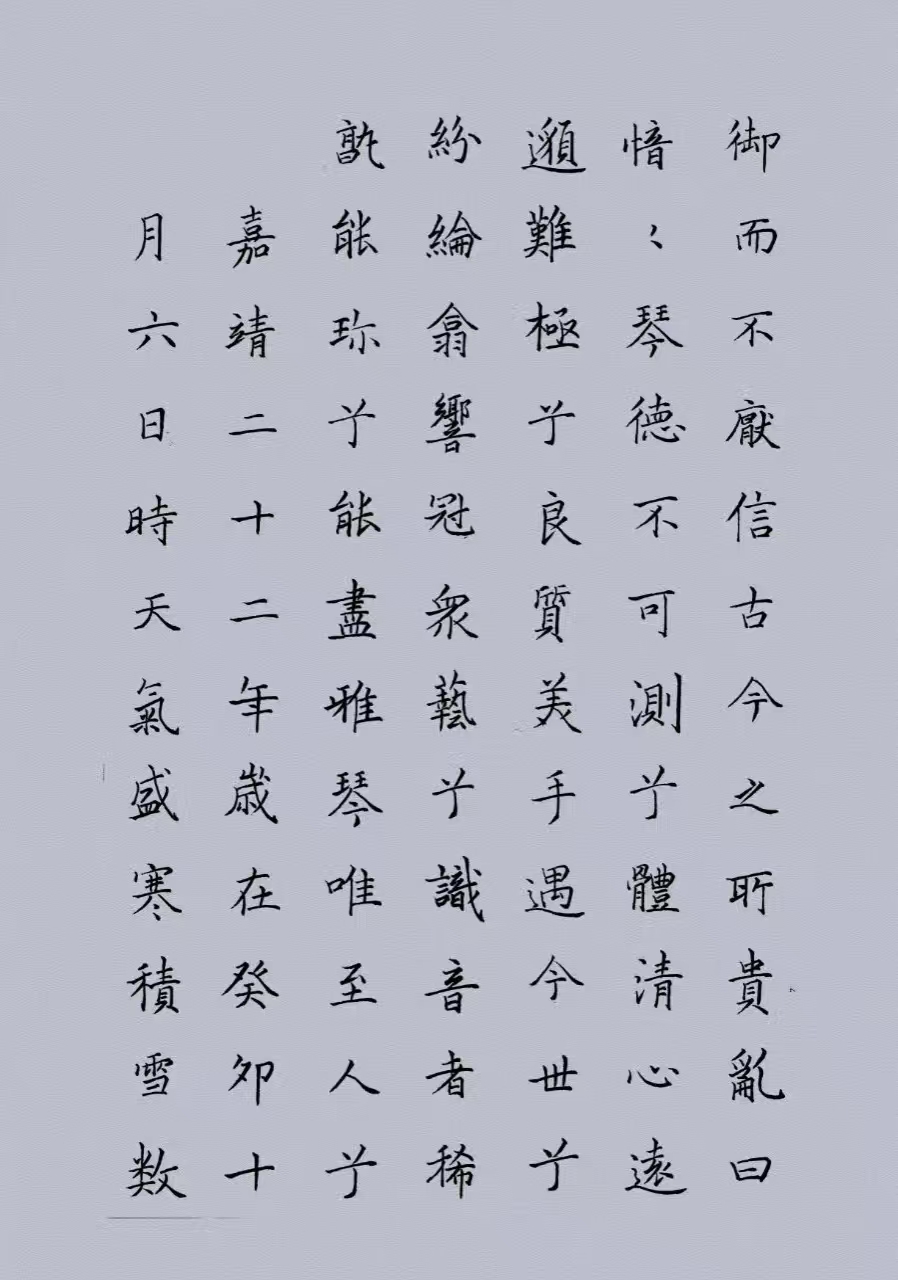 御而不厭信古今之所貴亂曰
愔〻琴德不可測兮體清心遠
邈難極兮良質美手遇今世兮
紛綸翕響冠衆藝兮識音者稀
孰能珎兮能盡雅琴唯至人兮
嘉靖二十二年歲在癸卯十
月六日時天氣盛寒積雪数